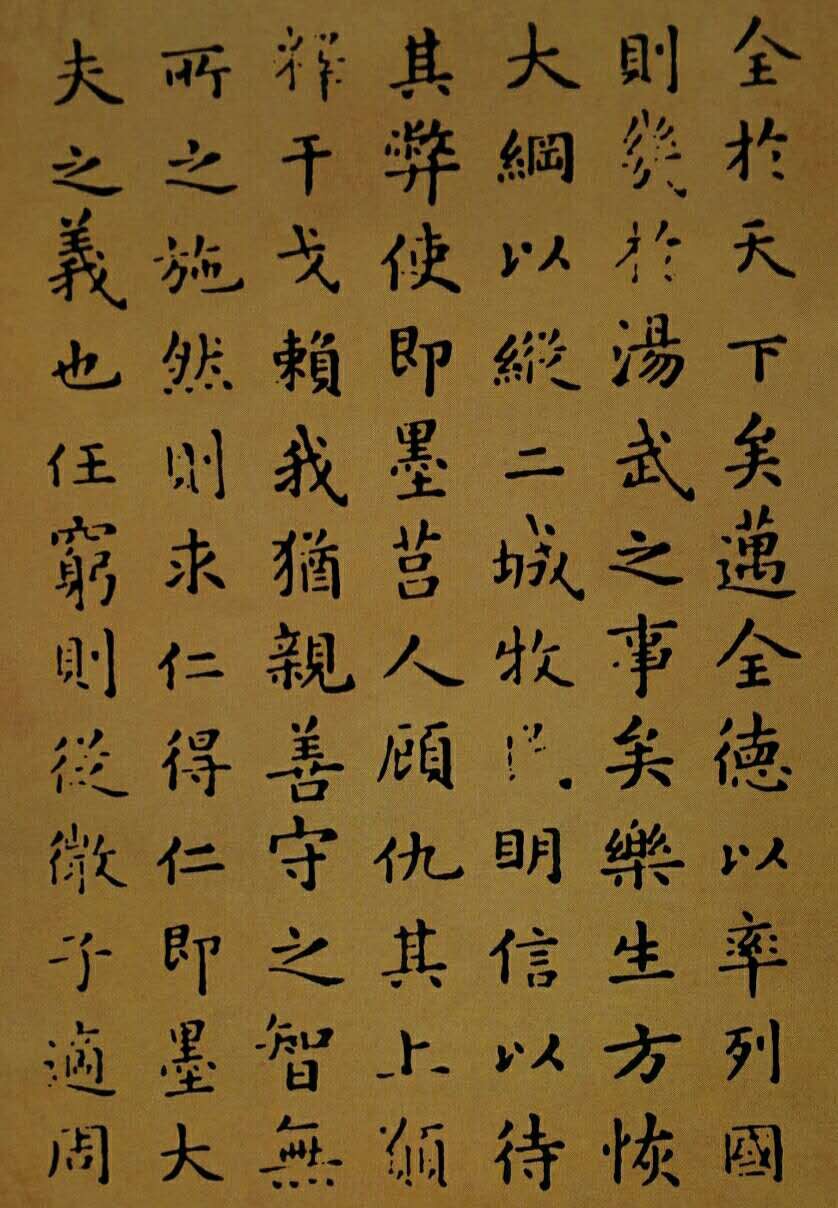 全於天下矣邁全德以率列國
則幾於湯武之事矣樂生方恢
大綱以縱二城牧民明信以待
其弊使即墨莒人顧仇其上願
釋干戈賴我猶親善守之智無
所之施然則求仁得仁即墨大
夫之義也任窮則從微子適周